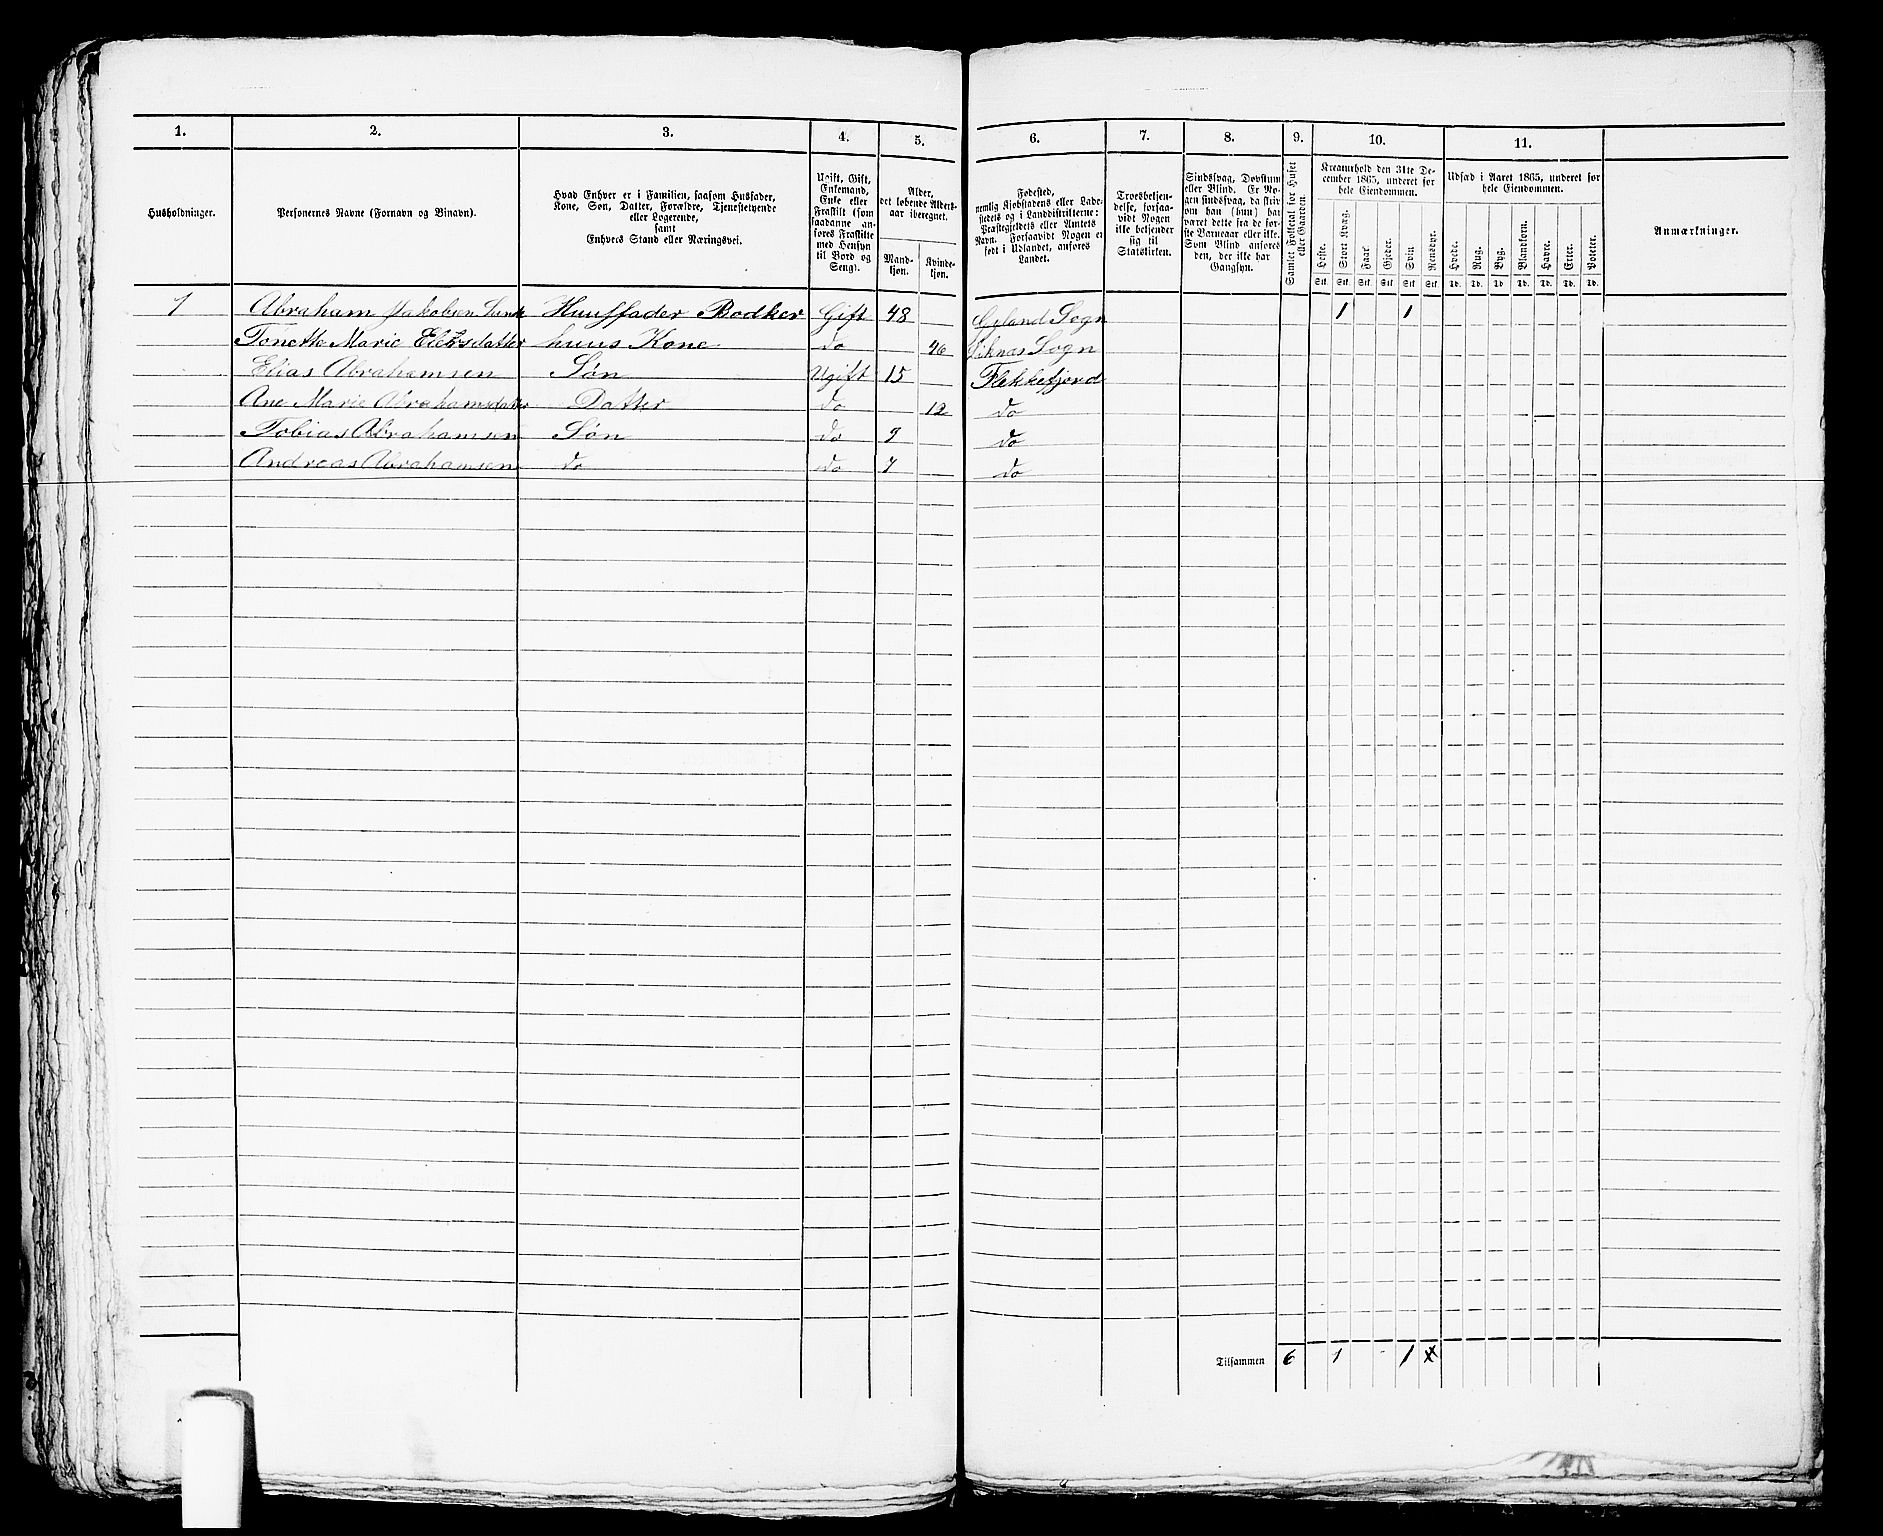 1. 2. 3. 4. 5. 6. 7. 8. 9. 10. 11.
Husholdninger.
Personernes Navne (Fornavn og Binavn).
Hvad Enhver er i Familien, saasom Husfader,
Kone, Søn, Datter, Forældre, Tjenestetyende
eller Logerende,
samt
Enhvers Stand eller Næringsvei.
Ugift, Gift,
Enkemand,
Enke eller
Fraskilt (som
saadanne an-
føres Fraskilte
med Hensyn
til Bord og
Seng).
Alder,
det løbende Alders-
aar iberegnet.
Mand-
kjøn.
Kvinde-
kjøn.
Fødested,
nemlig Kjøbstadens eller Lade-
stedets og i Landdistrikterne:
Præstegjeldets eller Amtets
Navn. Forsaavidt Nogen er
født i Udlandet, anføres
Landet.
Troesbekjen-
delse, forsaa-
vidt Nogen
ikke bekjender
sig til
Statskirken.
Sindssvag, Døvstum
eller Blind. Er No-
gen sindssvag, da skriv
om han (hun) har
været dette fra de før-
ste Barneaar eller ikke.
Som Blind anføres
den, der ikke har
Gangsyn.
Samlet Folketal for Huset
eller Gaarden.
Kreaturhold den 31te De-
cember 1865, underet for
hele Eiendommen.
Heste. Stort Kvæg. Faar. Gjeder. Svin Rensdyr.
Stk. Stk. Stk. Stk. Stk. Stk.
Udsæd i Aaret 1865, underet for
hele Eiendommen.
Hvede. Rug. Byg. Blandkorn. Havre. Erter. Poteter.
Td. Td. Td. Td. Td. Td. Td.
Anmærkninger.
1 Abraham Jakobsen Huusfader Bødker Gift 48 Gyland Sogn 1 1
Tonette Marie huus Kone do 46 Sogn
Elias Abrahamsen Søn Ugift 15 Flekkefjord
Ane Marie Abrahamsdatter Datter do 12 do
Tobias Abrahamsen Søn do 9 do
Andreas Abrahamsen do do 7 do
Tilsammen 6 1 1